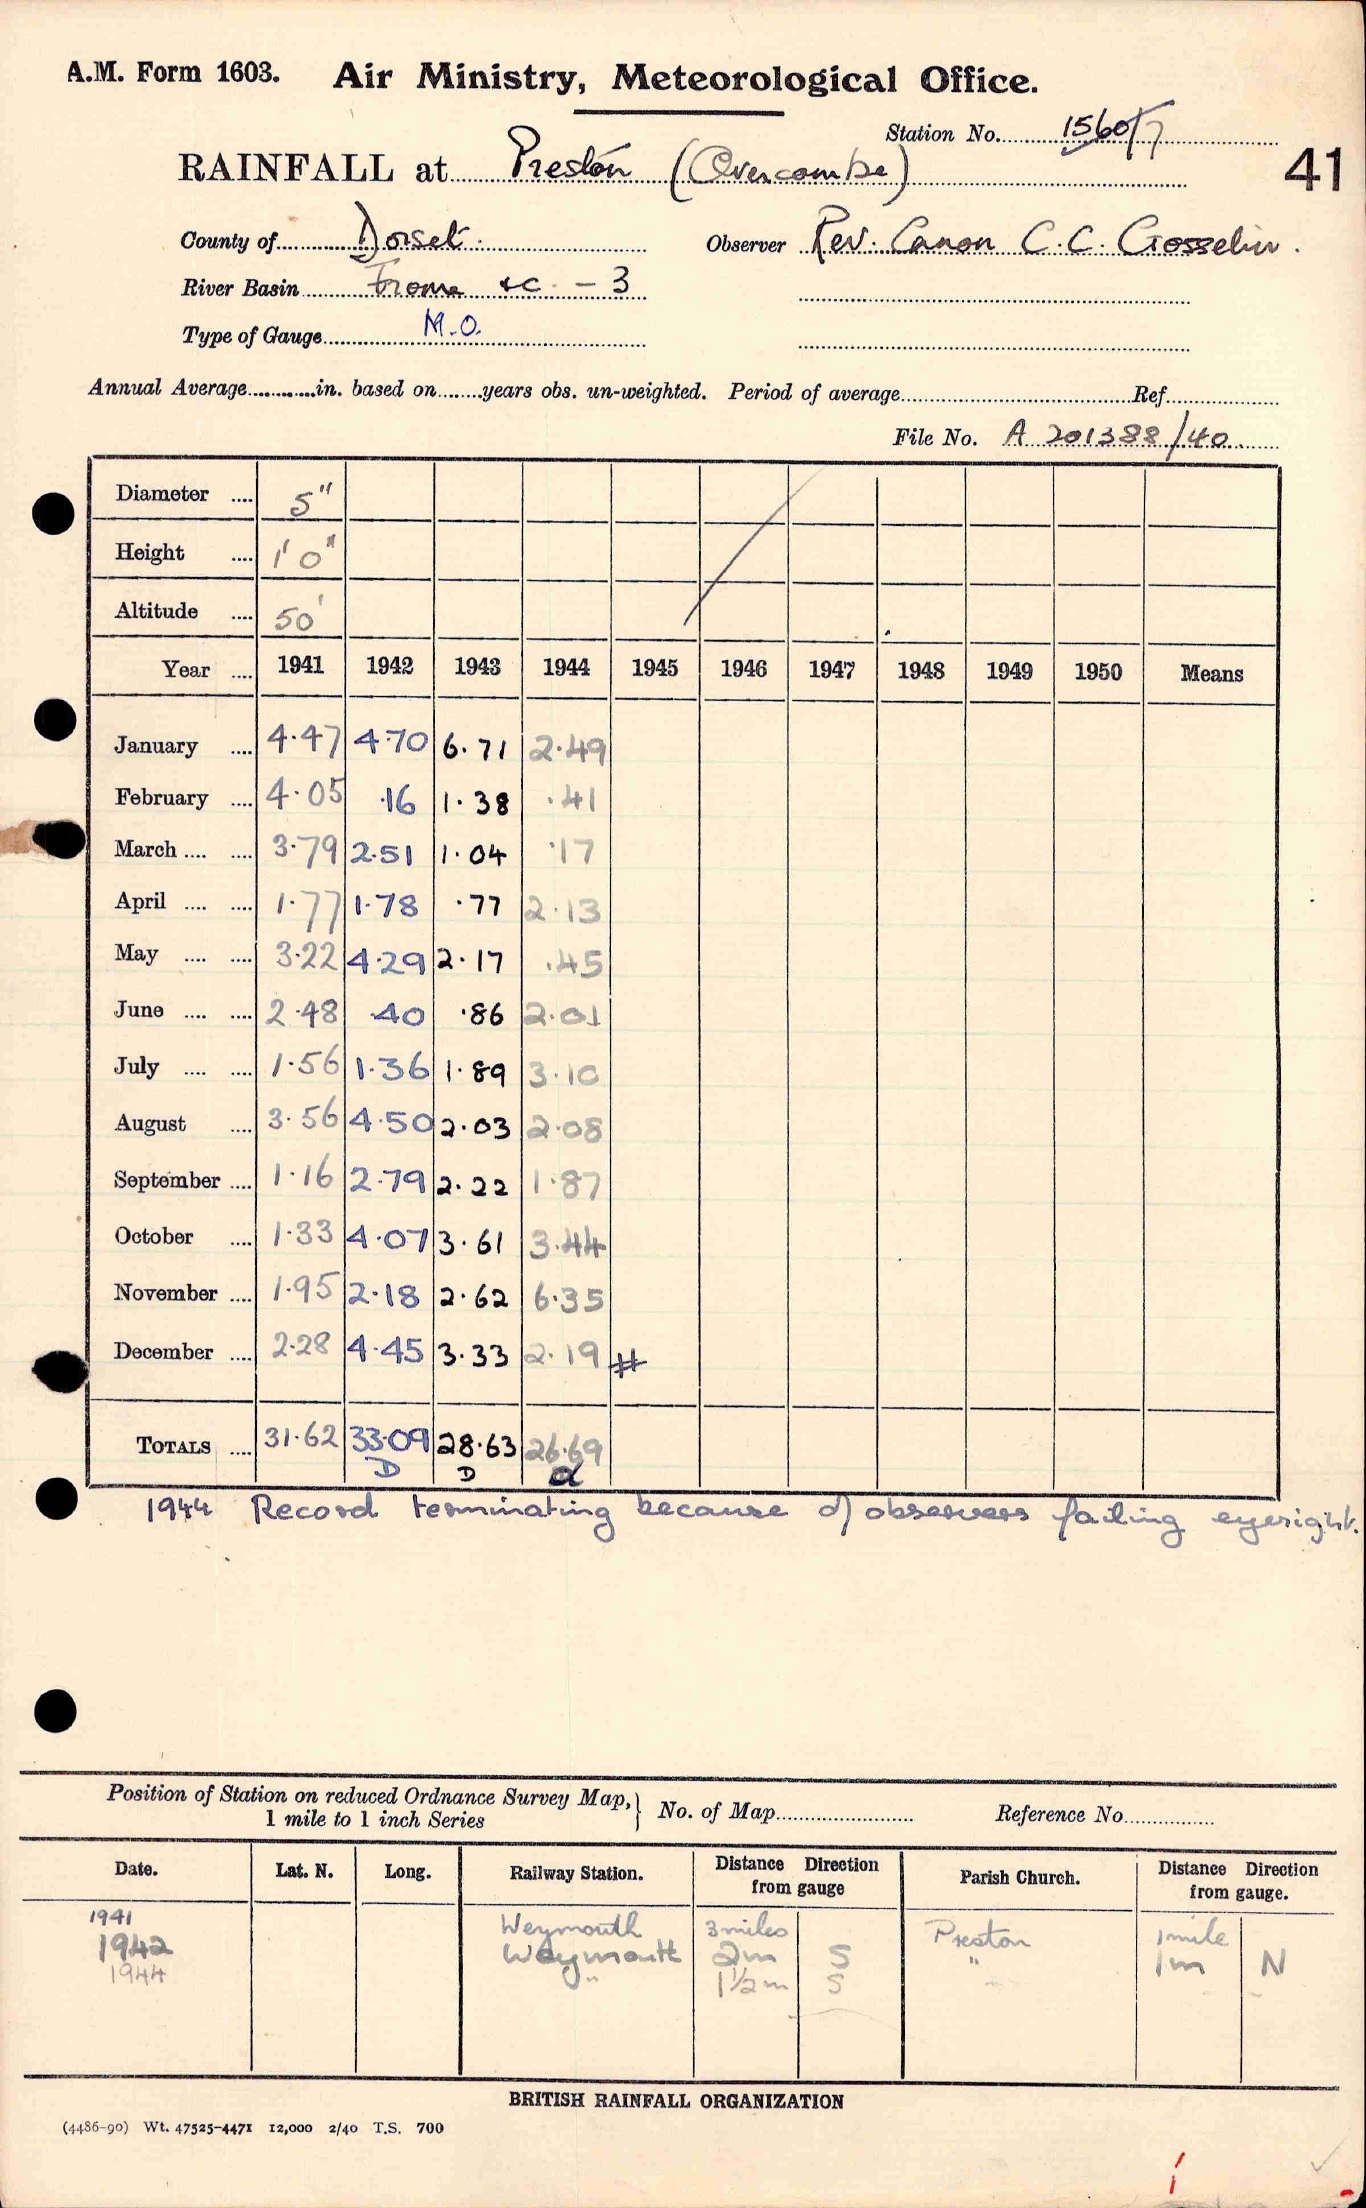 A.M. Form 1603. Air Ministry, Meteorological Office.
Station No. 1560/7
41
RAINFALL at Preston (Overcombe)
County of Dorset. Observer Rev. Canon C. C. Gosselin.
River Basin Frome &c - 3
Type of Gauge M.O.
Annual Average............in. based on........years obs. un-weighted. Period of average Ref
File No. A 201388/40
Diameter .... 5"
Height .... 1' 0"
Altitude .... 50'
Year .... 1941 1942 1943 1944 1945 1946 1947 1948 1949 1950 Means
January .... 4.47 4.70 6.71 2.49
February .... 4.05 .16 1.38 .41
March .... .... 3.79 2.51 1.04 .17
April .... .... 1.77 1.78 .77 2.13
May .... .... 3.22 4.29 2.17 .45
June .... .... 2.48 .40 .86 2.01
July .... .... 1.56 1.36 1.89 3.10
August .... 3.56 4.50 2.03 2.08
September .... 1.16 2.79 2.22 1.87
October .... 1.33 4.07 3.61 3.44
November .... 1.95 2.18 2.62 6.35
December .... 2.28 4.45 3.33 2.19 #
TOTALS .... 31.62 33.09 28.63 26.69
D D
1944 Record terminating because of observers failing eyesight.
Position of Station on reduced Ordnance Survey Map, } No. of Map Reference No
1 mile to 1 inch Series
Date. Lat. N. Long. Railway Station. Distance Direction from gauge Parish Church. Distance Direction from gauge.
1941 Weymouth 3 miles Preston 1 mile
1942 Weymouth 2m S " 1m N
1944 " 1½m S
BRITISH RAINFALL ORGANIZATION
(4486-90) Wt. 47525-4471 12,000 2/40 T.S. 700